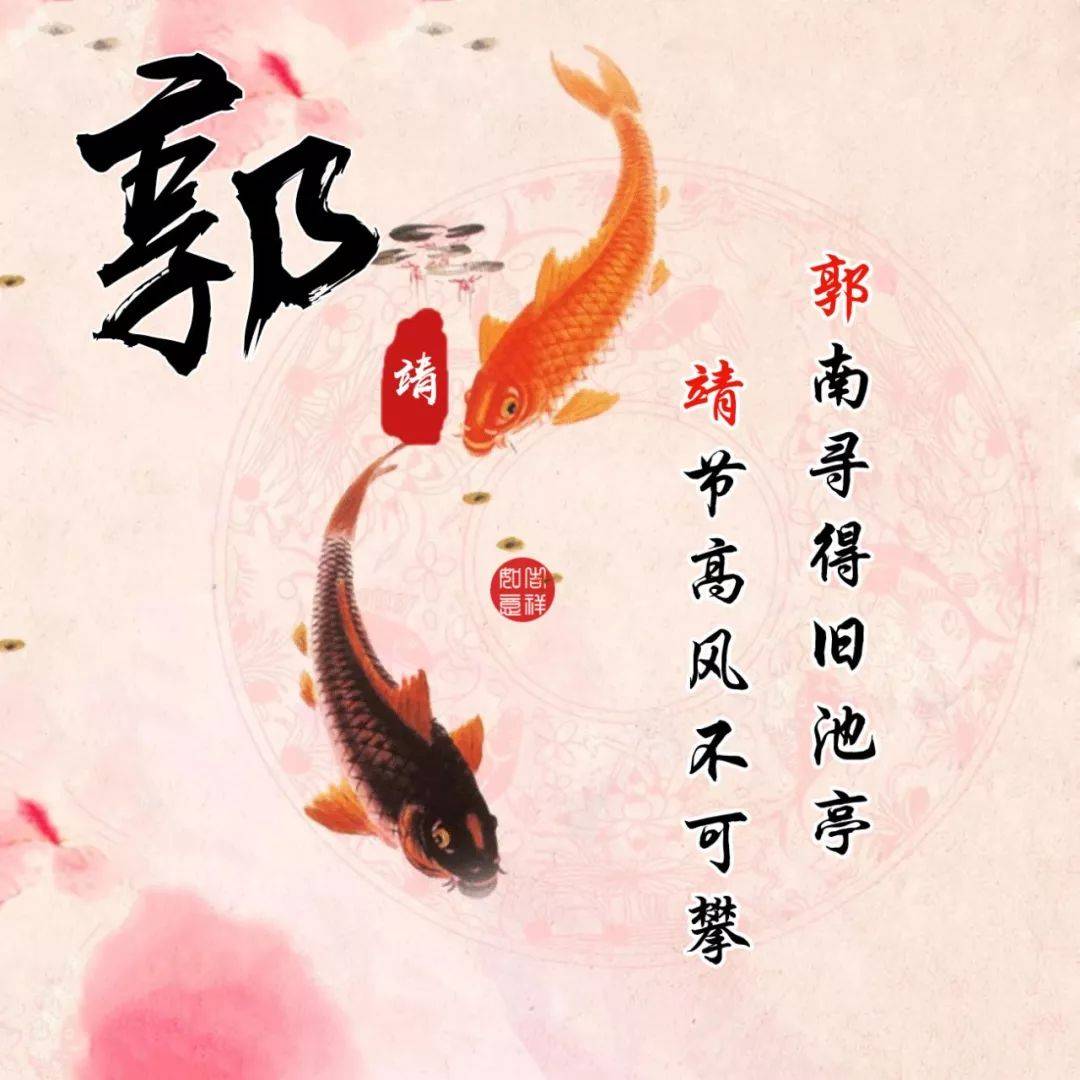 郭
靖
郭南寻得旧池亭
靖节高风不可攀
吉祥
如意